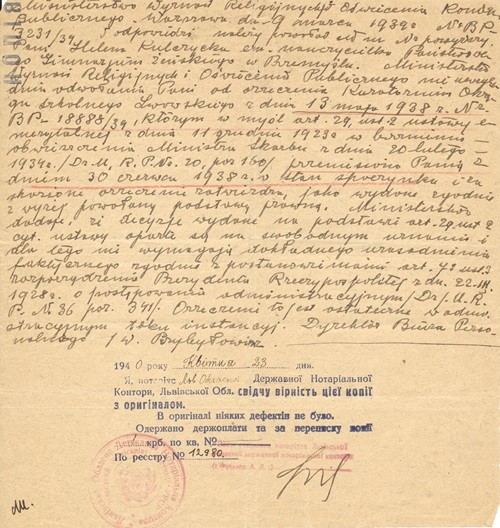 Ministerstwo Wyznań Religijnych i Oświecenia
Publicznego. Warszawa dn. 9 marca 1939 r. Nr BP-
3231/39 odpowiedzi należy powołać się na Nr
Pani Helena Kulczycka em. nauczycielka Państwowego
Gimnazjum Żeńskiego w Przemyślu. Ministerstwo
Wyznań Religijnych i Oświecenia Publicznego nie
odwołania Pani od orzeczenia Kuratorium Okrę-
gu Szkolnego Lwowskiego z dnia 13 maja 1938 r. No
BP-18888/39, którym w myśl art. 29, ust. 2 ustawy e-
merytalnej z dnia 11 grudnia 1923 w brzmieniu
obwieszczenia Ministra Skarbu z dnia 20 lutego
1934 r. /Dz. U. R. P. No. 20, poz. 160/ przeniesiono Panią z
dniem 30 czerwca 1938 r. w stan spoczynku i za-
skarżone orzeczenie zatwierdza, jako wydane zgodnie
z wyżej powołaną podstawą prawną. Ministerstwo
dodaje, że decyzje wydane na podstawie art. 29, ust. 2
cyt. ustawy oparte są na swobodnym uznaniu i
dlatego nie wymagają dokładnego uzasadnienia
faktycznego zgodnie z postanowieniami art. 75 ust. 3
rozporządzenia Prezydenta Rzeczypospolitej z dn. 22.III.
1928 r. o postępowaniu administracyjnym /Dz. U. R.
P. No 36 poz. 341/. Orzeczenie to jest ostateczne w admini-
stracyjnym toku instancji. Dyrektor Biura Perso-
nalnego /W.
1940 року Квітня 23 дня.
Я, нотаріус Державної Нотаріальної
Контори, Львівської Обл. свідчу вірність цієї копії
з оригіналом.
В оригіналі ніяких дефектів не було.
Одержано держоплати та за переписку копії
крб. по кв. №
По реєстру № 12980.